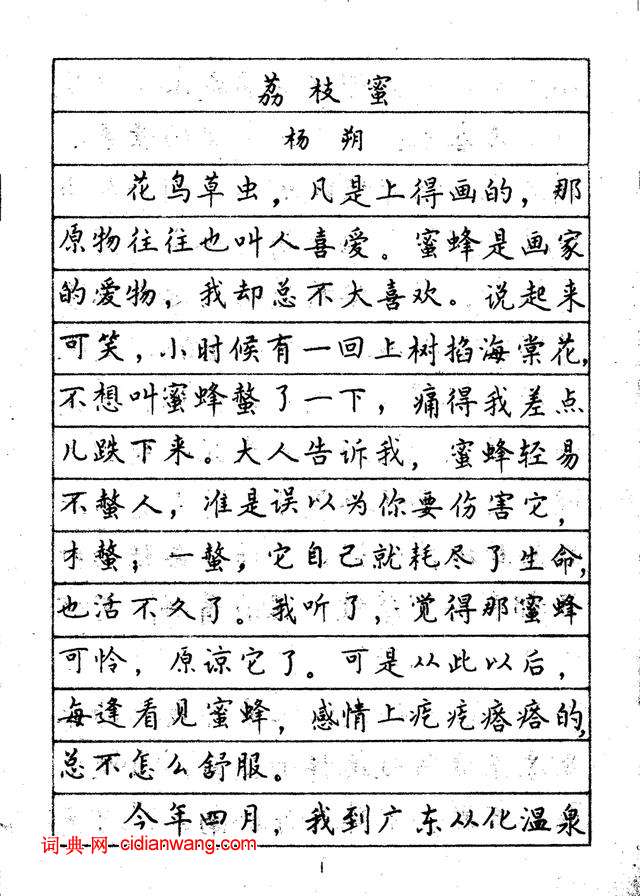 荔枝蜜
杨朔
花鸟草虫，凡是上得画的，那
原物往往也叫人喜爱。蜜蜂是画家
的爱物，我却总不大喜欢。说起来
可笑，小时候有一回上树掐海棠花，
不想叫蜜蜂螫了一下，痛得我差点
儿跌下来。大人告诉我，蜜蜂轻易
不螫人，准是误以为你要伤害它，
才螫；一螫，它自己就耗尽了生命，
也活不久了。我听了，觉得那蜜蜂
可怜，原谅它了。可是从此以后，
每逢看见蜜蜂，感情上疙疙瘩瘩的，
总不怎么舒服。
今年四月，我到广东从化温泉
词·典·网·cidianwang.com
1